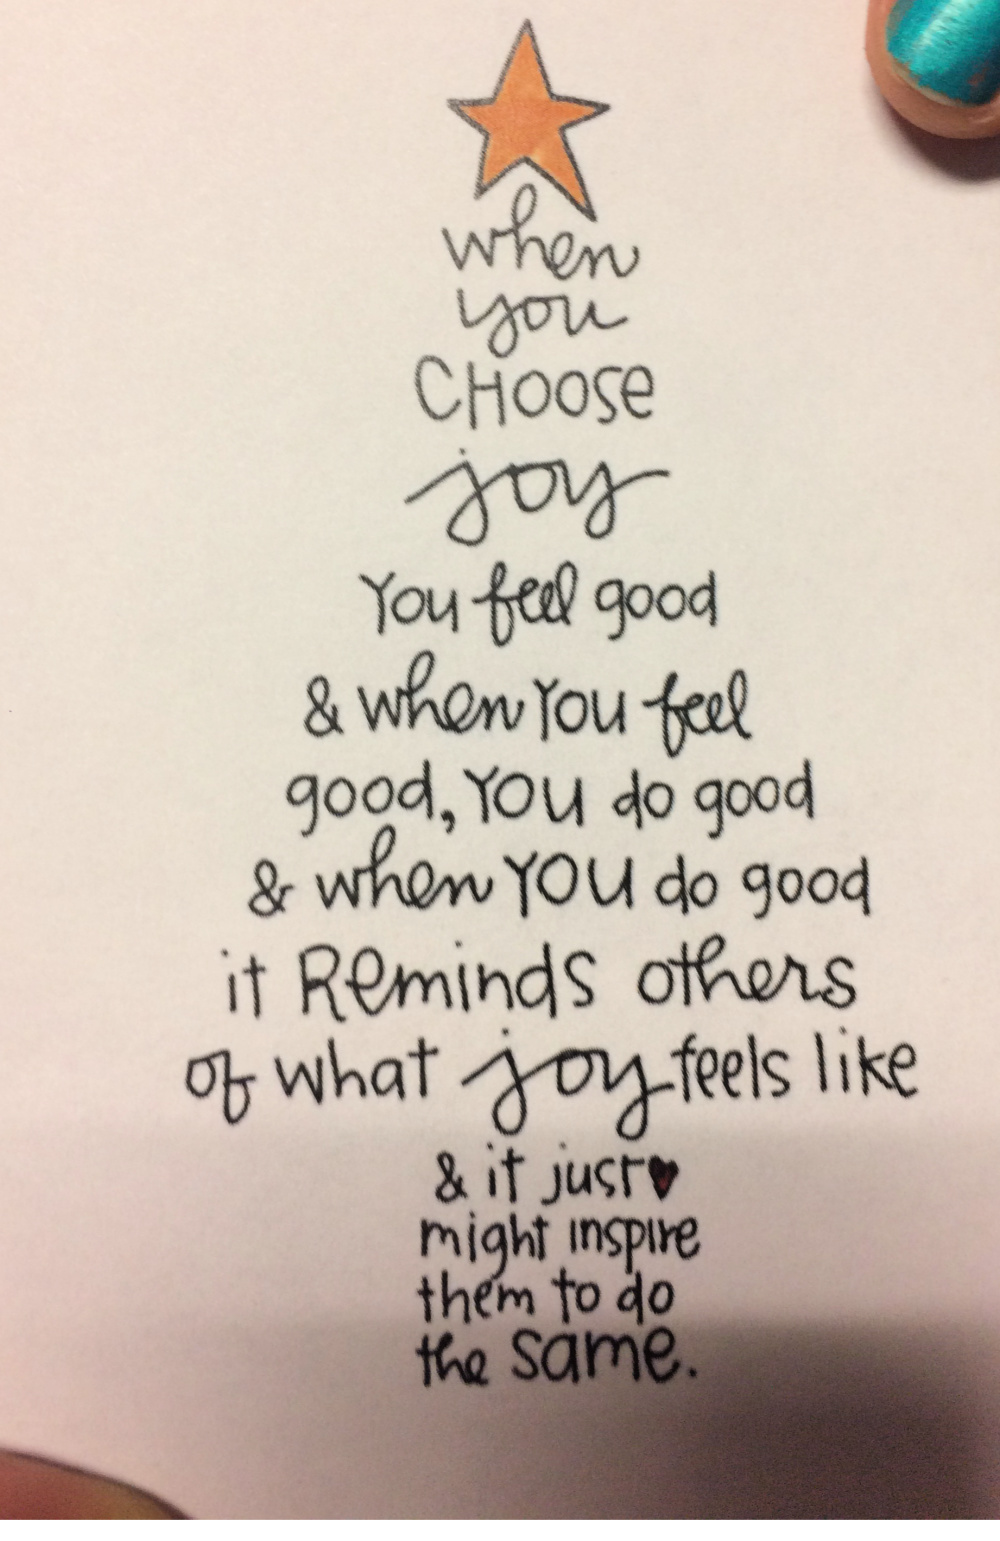 when
you
CHOOSE
joy
You feel good
& when You feel
good, YOU do good
& when YOU do good
it Reminds others
of what joy feels like
& it just
might inspire
them to do
the same.